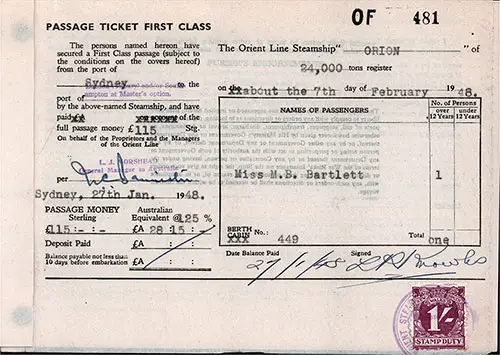 OF 481
PASSAGE TICKET FIRST CLASS
The persons named hereon have
secured a First Class passage (subject to
the conditions on the covers hereof)
from the port of
Sydney to the
port of
ampton at Master's option.
by the above-named Steamship, and have
paid of the
full passage money £115 Stg.
On behalf of the Proprietors and the Managers
of the Orient Line
L. J. DORSHEAD
General Manager in Australia
per
Sydney, 27th Jan. 1948.
PASSAGE MONEY Australian
Sterling Equivalent @125 %
£115:- : - £A 28 : 15 : -
Deposit Paid £A : :
Balance payable not less than
10 days before embarkation £A : :
The Orient Line Steamship "ORION" of
24,000 tons register
on the xxabout the 7th day of February 1948.
NAMES OF PASSENGERS
No. of Persons
over 12 Years
under 12 Years
Miss M.B. Bartlett 1
BERTH No.:
CABIN
xxx 449
Total one
Date Balance Paid Signed
27/1/48
1/-
STAMP DUTY